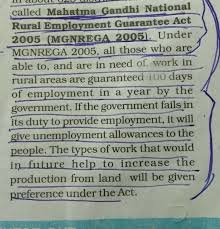 called Mahatma Gandhi National
Rural Employment Guarantee Act
2005 (MGNREGA 2005). Under
MGNREGA 2005, all those who are
able to, and are in need of, work in
rural areas are guaranteed 100 days
of employment in a year by the
government. If the government fails in
its duty to provide employment, it will
give unemployment allowances to the
people. The types of work that would
in future help to increase the
production from land will be given
preference under the Act.